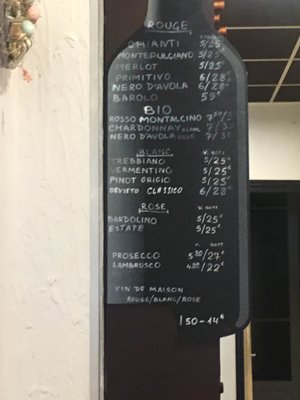 ROUGE
CHIANTI 5/25€
MONTEPULCIANO 5/25€
MERLOT 5/25€
PRIMITIVO 6/28€
NERO D'AVOLA 6/28€
BAROLO 59€
BIO
ROSSO MONTALCINO
CHARDONNAY BLANC
NERO D'AVOLA ROSE
BLANC V. BOTT.
TREBBIANO 5/25€
VERMENTINO 5/25€
PINOT GRIGIO 5/25€
ORVIETO CLASSICO 6/28€
ROSE V. BOTT.
BARDOLINO 5/25€
ESTATE 5/25€
V. BOTT
PROSECCO 5.50/27€
LAMBRUSCO 4.50/22€
VIN DE MAISON
ROUGE/BLANC/ROSE
1 50-14€